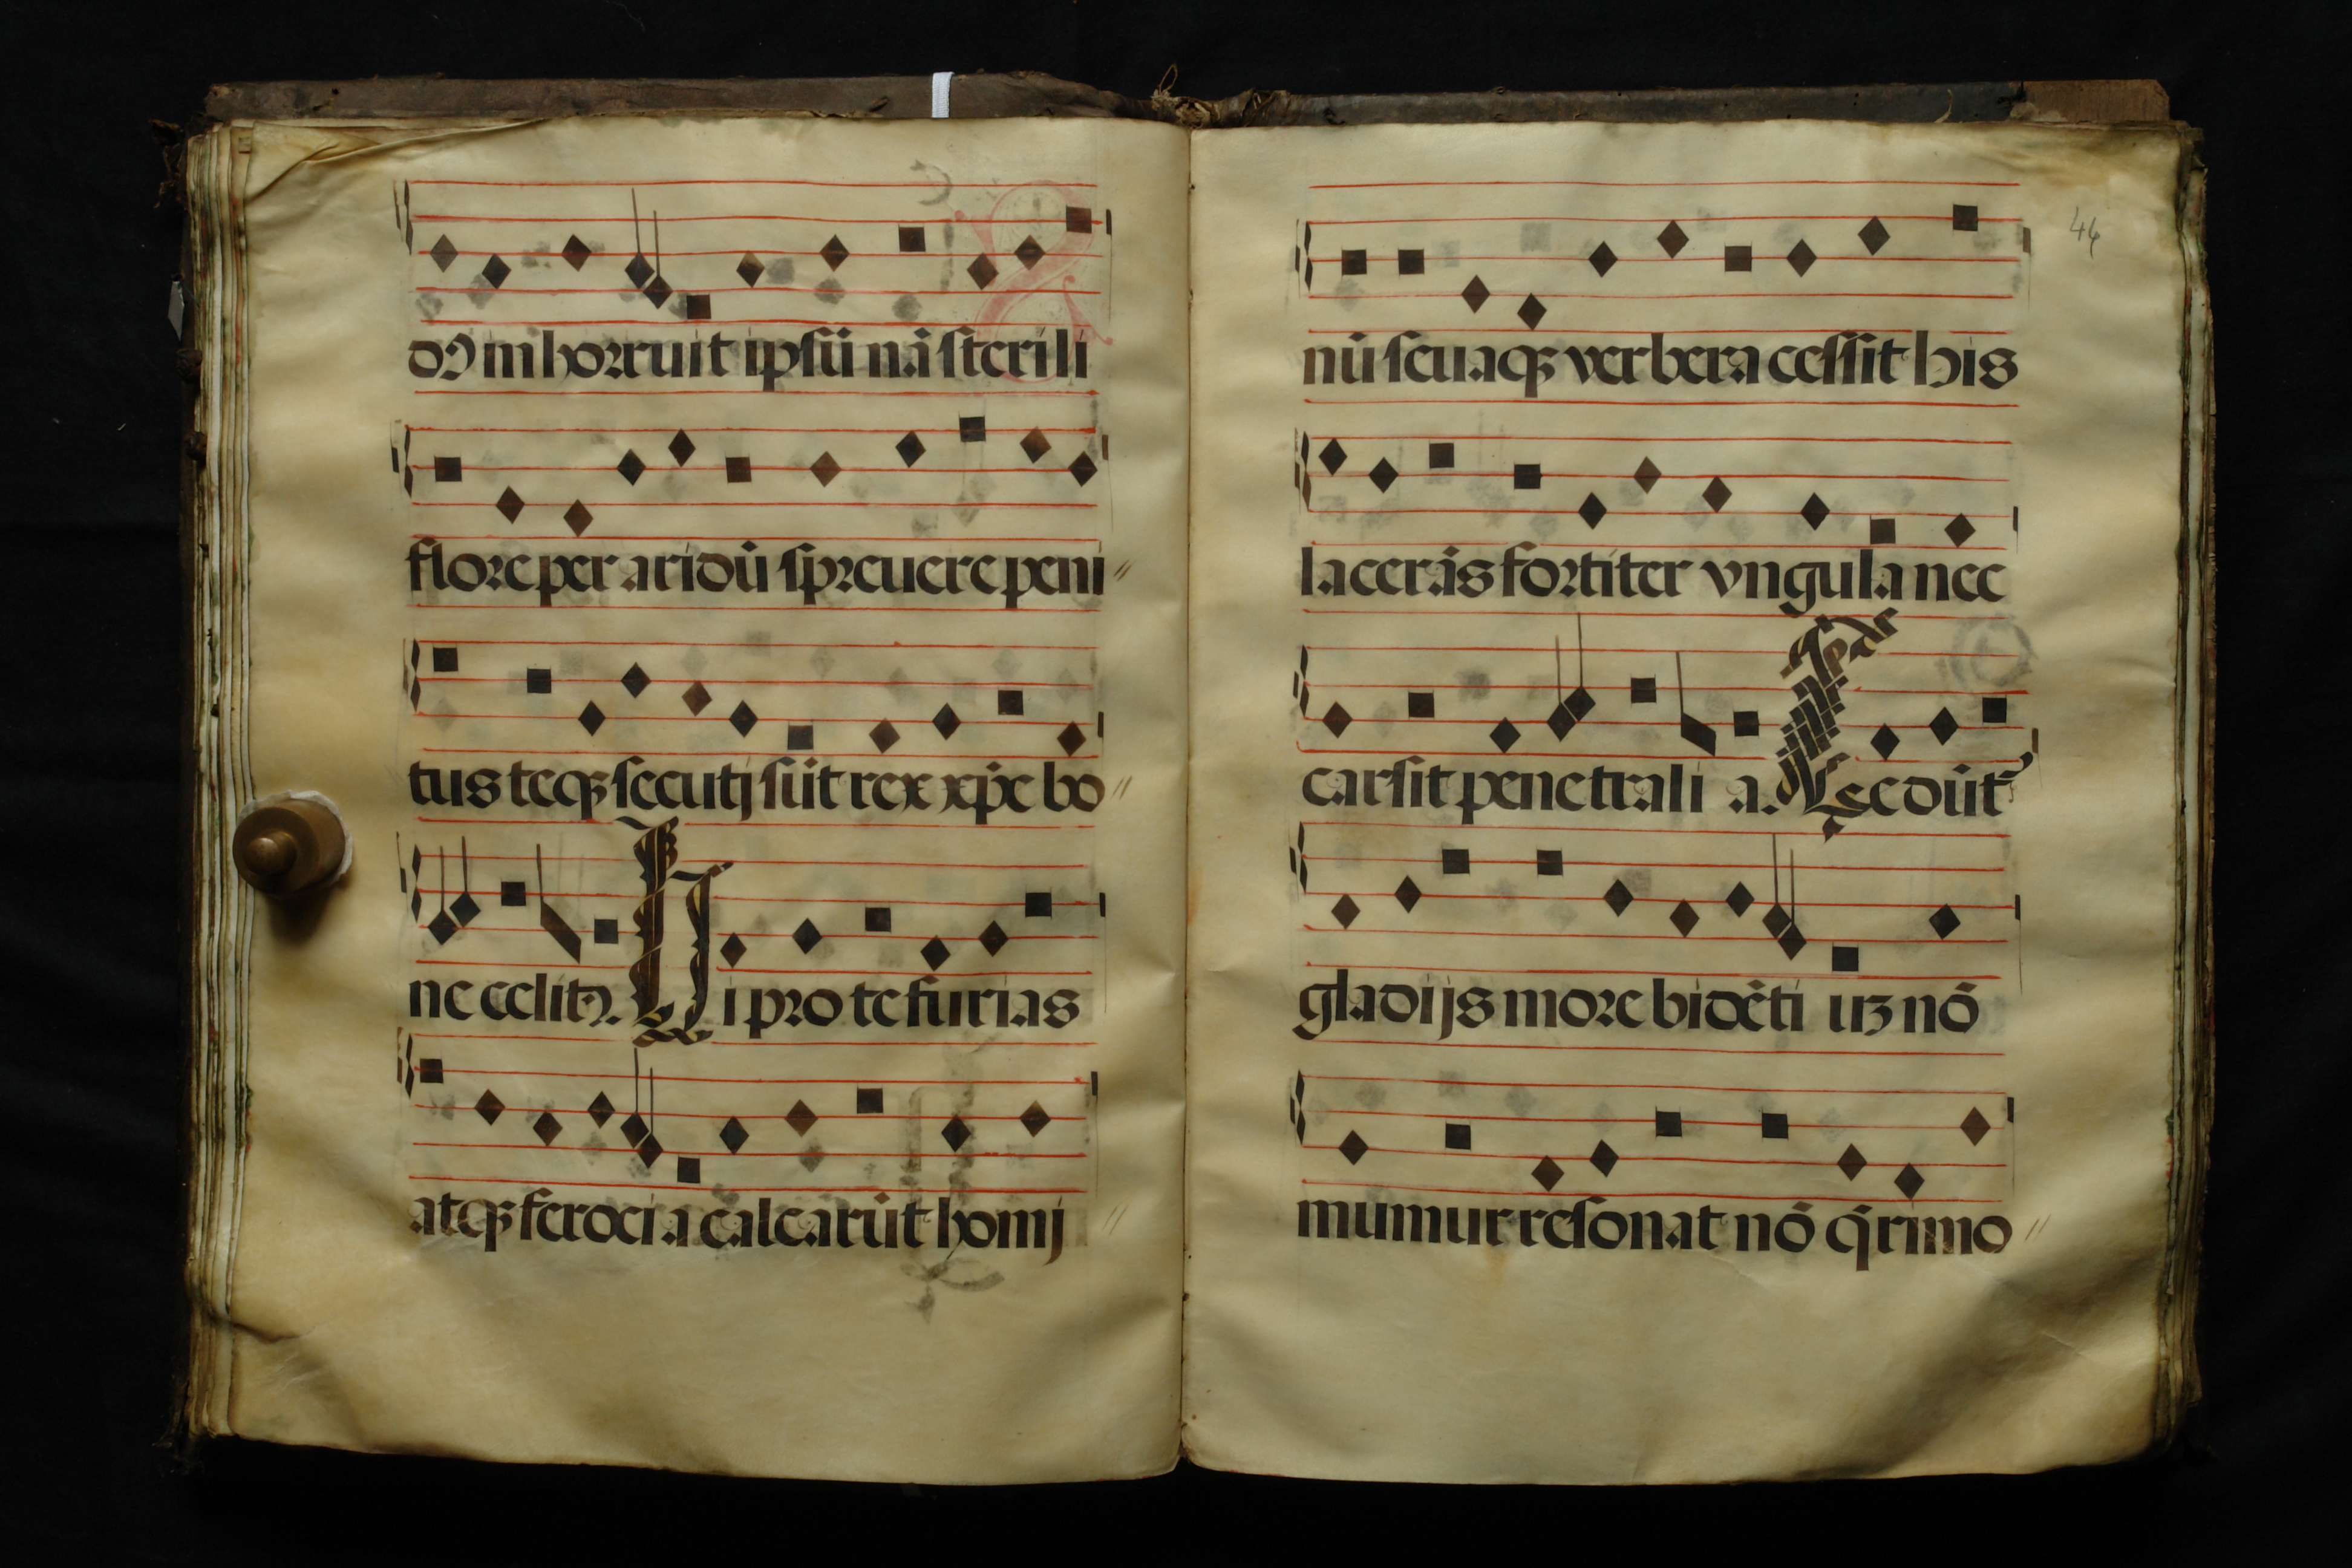 dꝰ inhorruit ipsū nā sterili
flore per aridū spreuere peni//
tus teqꝫ secutj sūt rex xp̄e bo//
ne celitꝰ. Hi pro te furias
atqꝫ ferocia calcarūt homj //
44
nū seuaqꝫ verbera cessit his
lacerās fortiter vngula nec
carsit penetrali a. Cedūtr
gladijs more bidēti uꝫ nō
mumur resonat nō q̄rimo //